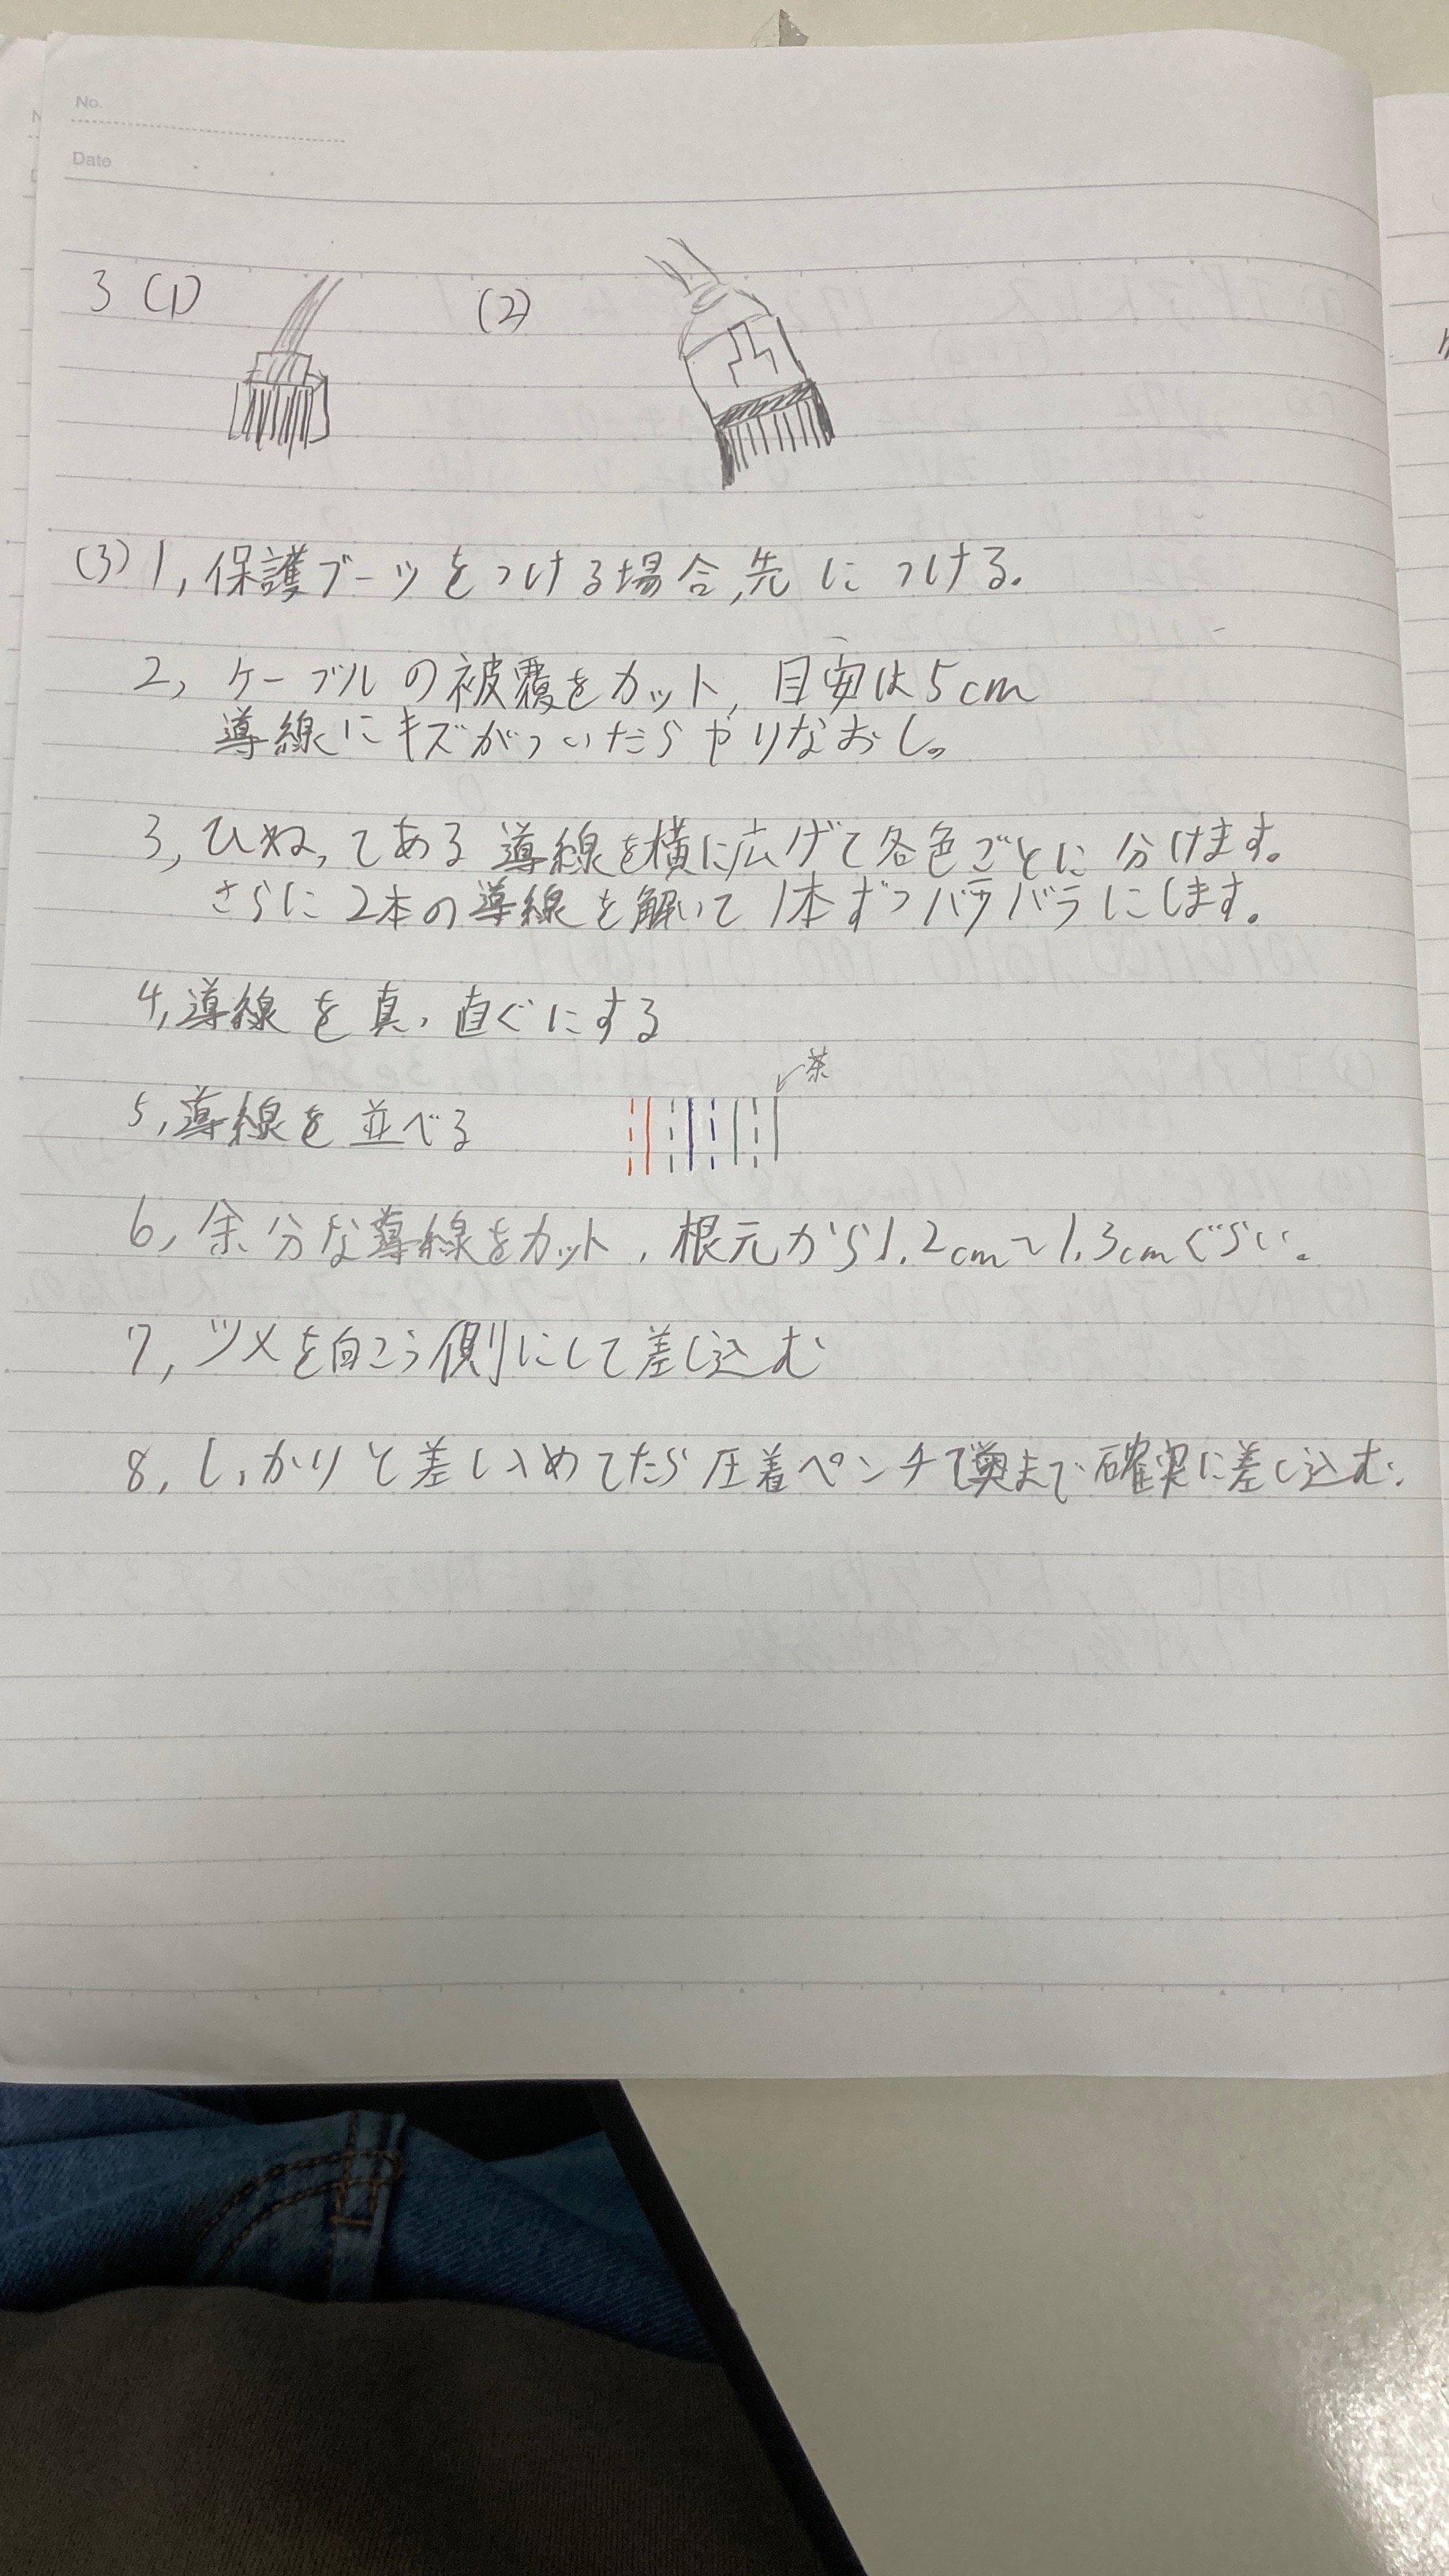 No.
Date
3 (1) (2)
(3) 1, 保護ブーツをつける場合,先につける。
2, ケーブルの被覆をカット, 目安は5cm
導線にキズがついたらやりなおし。
3, ひねってある導線を横に広げて各色ごとに分けます。
さらに2本の導線を解いて1本ずつバラバラにします。
4, 導線を真っ直ぐにする
茶
5, 導線を並べる
6, 余分な導線をカット, 根元から1.2cm~1.3cmぐらい。
7, ツメを向こう側にして差し込む
8, しっかりと差し込めてたら圧着ペンチで奥まで確実に差し込む。